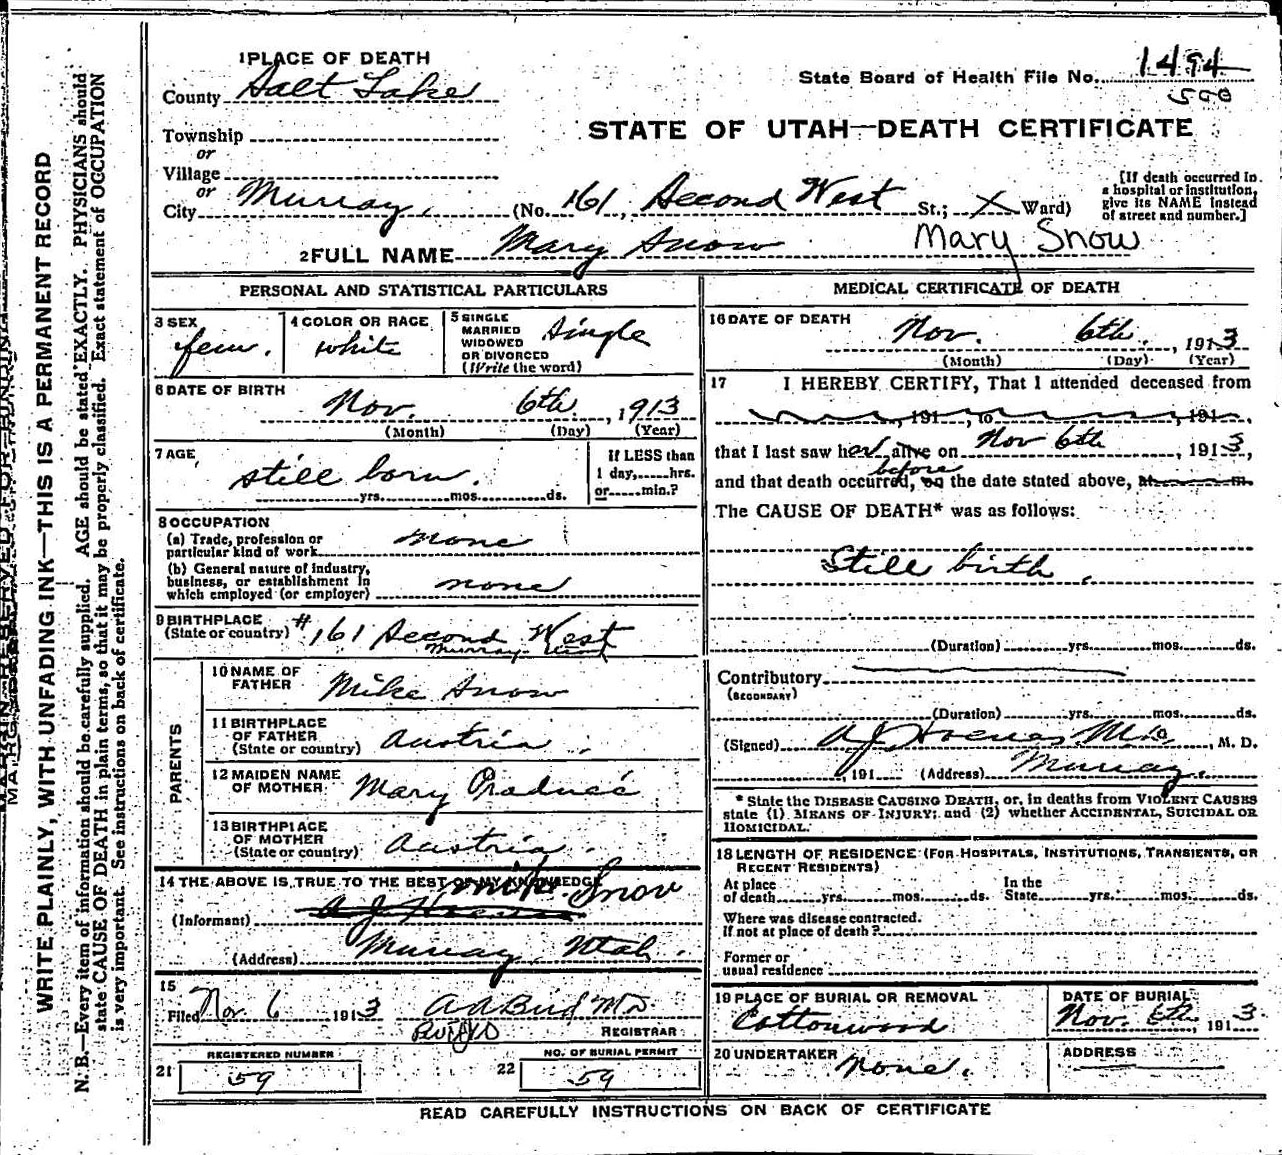 1 PLACE OF DEATH
County Salt Lake
State Board of Health File No. 1494
590
STATE OF UTAH—DEATH CERTIFICATE
Township
or
Village
or
City Murray. (No. 161, Second West St.; X Ward)
[If death occurred in a hospital or institution, give its NAME instead of street and number.]
2 FULL NAME Mary Snow Mary Snow
PERSONAL AND STATISTICAL PARTICULARS
3 SEX
fem.
4 COLOR OR RACE
white
5 SINGLE MARRIED WIDOWED OR DIVORCED (Write the word)
Single
6 DATE OF BIRTH
Nov. 6th, 1913
(Month) (Day) (Year)
7 AGE
still born.
yrs. mos. ds.
If LESS than 1 day, hrs. or min.?
8 OCCUPATION
(a) Trade, profession or particular kind of work none
(b) General nature of industry, business, or establishment in which employed (or employer) none
9 BIRTHPLACE
(State or country) # 161 Second West
Murray Utah
PARENTS
10 NAME OF FATHER Mike Snow
11 BIRTHPLACE OF FATHER (State or country) Austria
12 MAIDEN NAME OF MOTHER Mary
13 BIRTHPLACE OF MOTHER (State or country) Austria.
14 THE ABOVE IS TRUE TO THE BEST OF MY KNOWLEDGE
Mike Snov
(Informant)
(Address) Murray Utah.
15
Filed Nov. 6 1913
REGISTRAR
REGISTERED NUMBER
21 59
NO. OF BURIAL PERMIT
22 59
MEDICAL CERTIFICATE OF DEATH
16 DATE OF DEATH
Nov. 6th, 1913
(Month) (Day) (Year)
17 I HEREBY CERTIFY, That I attended deceased from
, 191 , to , 191 ,
that I last saw her alive on Nov 6th, 1913,
before
and that death occurred, on the date stated above, at m.
The CAUSE OF DEATH* was as follows:
Still birth.
(Duration) yrs. mos. ds.
Contributory
(SECONDARY)
(Duration) yrs. mos. ds.
(Signed) M.D., M. D.
, 191 (Address) Murray.
* State the DISEASE CAUSING DEATH, or, in deaths from VIOLENT CAUSES
state (1) MEANS OF INJURY; and (2) whether ACCIDENTAL, SUICIDAL OR
HOMICIDAL.
18 LENGTH OF RESIDENCE (FOR HOSPITALS, INSTITUTIONS, TRANSIENTS, OR
RECENT RESIDENTS)
At place of death yrs. mos. ds. In the State yrs. mos. ds.
Where was disease contracted.
If not at place of death?
Former or
usual residence
19 PLACE OF BURIAL OR REMOVAL
Cottonwood
DATE OF BURIAL
Nov. 6th, 1913.
20 UNDERTAKER
none.
ADDRESS
READ CAREFULLY INSTRUCTIONS ON BACK OF CERTIFICATE
WRITE PLAINLY, WITH UNFADING INK—THIS IS A PERMANENT RECORD
N. B.—Every item of information should be carefully supplied. AGE should be stated EXACTLY. PHYSICIANS should
state CAUSE OF DEATH in plain terms, so that it may be properly classified. Exact statement of OCCUPATION
is very important. See instructions on back of certificate.